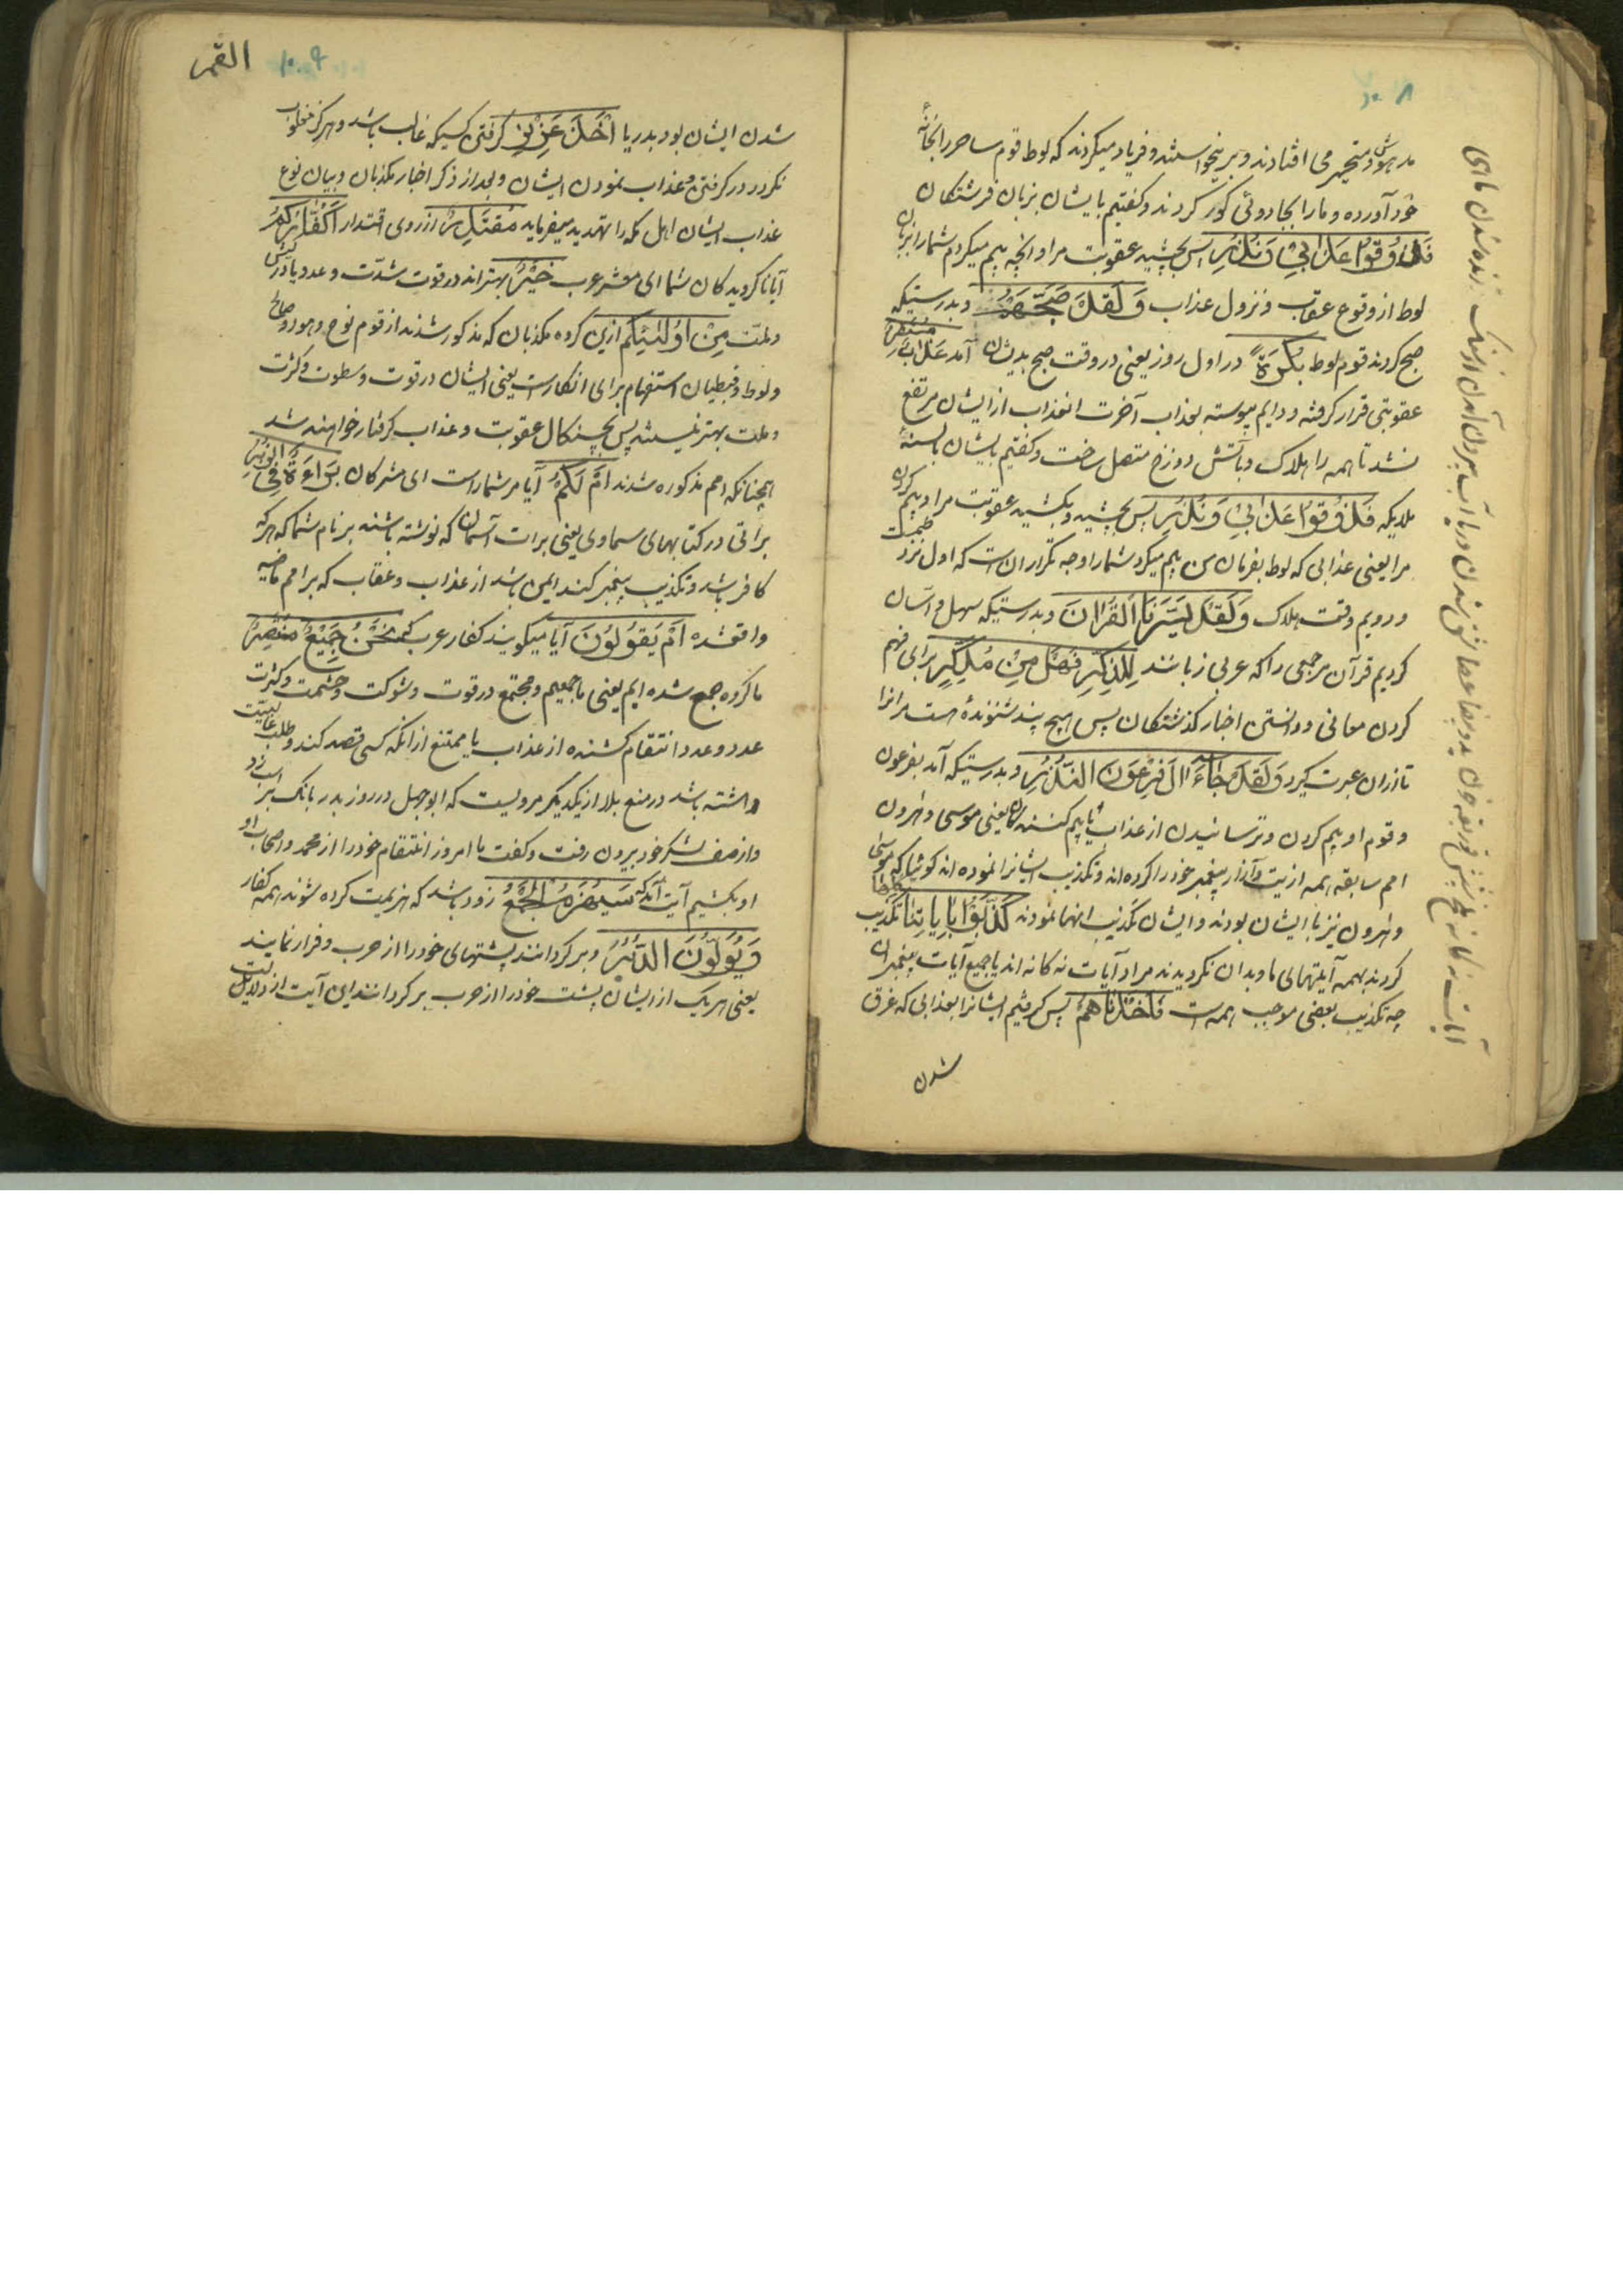 ۱۰۰۸
مدهوش و متحیر می افتادند و بر نیخواستند و فریاد میکردند که لوط قوم ساحر را بخانهٔ
خود آورده و ما را بجادوئی کور کردند و کفتیم بایشان بزبان فرشتکان
فَذُوقُوا عَذَابِی وَ نُذُرِ پس بچشید عقوبت مرا و انچه بیم میکردم شما را بزبان
لوط از وقوع عقاب و نزول عذاب وَ لَقَد صَبَّحَهُم و بدرستیکه
صبح کردند قوم لوط بُکرَةً در اول روز یعنی در وقت صبح بدیشان آمد عَذَابٌ مُستَقِرٌّ
عقوبتی قرار کرفته و دایم پیوسته بعذاب آخرت انعذاب از ایشان مرتفع
نشد تا همه را هلاک و بآتش دوزخ متصل ساخت و کفتیم بایشان بالسنهٔ
ملایکه فَذُوقُوا عَذَابِی وَ نُذُرِ پس بچشید و بکشید عقوبت مرا و بیم کردن
مرا یعنی عذابی که لوط بفرمان من بیم میکرد شما را وجه تکرار ان است که اول نزد طمس است
و دویم وقت هلاک وَ لَقَد یَسَّرنَا القُرانَ و بدرستیکه سهل و آسان
کردیم قرآن مرجمعی را که عربی زبانند لِلذِّکرِ فَهَل مِن مُدَّکِرٍ برای فهم
کردن معانی و دانستن اخبار کذشتکان پس هیچ پند شنونده هست مرانرا
تا ازان عبرت کیرد وَ لَقَد جَاءَ الَ فِرعَونَ النُّذُرُ و بدرستیکه آمد بفرعون
و قوم او بیم کردن و ترسانیدن از عذاب یا بیم کنندکان یعنی موسی و هرون
امم سابقه همه اذیت و آزار پیغمبر خود را کرده اند و تکذیب ایشانرا نموده اند کوئیا که موسی
و هرون نیز با ایشان بودند و ایشان تکذیب انها نمودند کَذَّبُوا بِایَاتِنَا کُلِّهَا تکذیب
کردند بهمه آیتهای ما و بدان نکرویدند مراد آیات نه کانه اند یا جمیع آیات پیغمبران
چه تکذیب بعضی موجب همه است فَاَخَذنَاهُم پس کرفتیم ایشانرا بعذابی که غرق
شدن
القمر ۱۰۰۹
شدن ایشان بود بدریا اَخذَ عَزِیزٍ کرفتن کسیکه غالب باشد و هرکز مغلوب
نکردد در کرفتن و عذاب نمودن ایشان و بعد از ذکر اخبار مکذبان و بیان نوع
عذاب ایشان اهل مکه را تهدید میفرماید مُقتَدِرٍ از روی اقتدار اَکُفَّارُکُم
آیا ناکرویدکان شما ای معشر عرب خَیرٌ بهتراند در قوت شدّت و عدد یا در
و ملت مِن اُولٰئِکُم ازین کروه مکذبان که مذکور شدند از قوم نوح و هود و صالح
و لوط و قبطیان استفهام برای انکار است یعنی ایشان در قوت و سطوت و کثرت
و ملت بهتر نیستند پس بچنکال عقوبت و عذاب کرفتار خواهند شد
همچنانکه امم مذکوره شدند اَم لَکُم آیا مر شما راست ای مشرکان بَرَاءَةٌ فِی الزُّبُرِ
براتی در کتابهای سماوی یعنی برات آسمان که نوشته باشند بر نام شما که هرکه
کافر باشد و تکذیب پیغمبر کند ایمن باشد از عذاب و عقاب که بر امم ماضیه
واقعشده اَم یَقُولُونَ آیا میکویند کفار عرب که نَحنُ جَمِیعٌ مُنتَصِرٌ
ما کروه جمع شده ایم یعنی ما جمعیم و مجتمع در قوت و شوکت و حشمت و کثرت
عدد و عدد انتقام کشنده از عذاب یا ممتنع ازانکه کسی قصد کند و طلب
داشته باشد در منع بلا از یکدیکر مرویست که ابوجهل در روز بدر بانک بر اسب زد
و از صف لشکر خود بیرون رفت و کفت ما امروز انتقام خود را از محمد و اصحاب او
او بکشیم آیت آمد که سَیُهزَمُ الجَمعُ زود باشد که هزیمت کرده شوند همه کفار
وَ یُوَلُّونَ الدُّبُرَ و بر کردانند پشتهای خود را از حرب و فرار نمایند
یعنی هریک از ایشان پشت خود را از حرب بر کردانند این آیت از دلایل